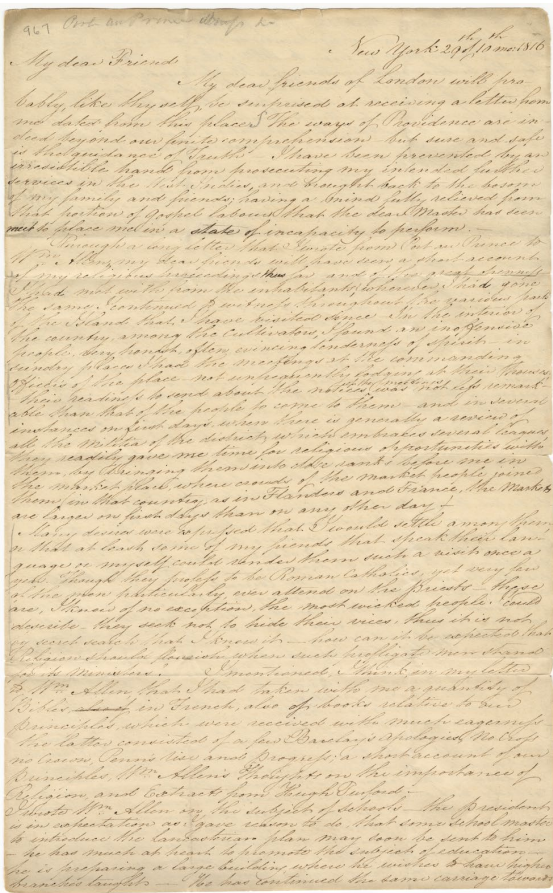 967 Port au Prince
New York 29th of 10th mo 1816
My dear Friend
My dear friends of London will pro-
bably, like thyself, be surprised at receiving a letter from
me dated from this place. The ways of Providence are in-
deed beyond our finite comprehension but sure and safe
is the guidance of Truth. I have been prevented by an
irresistible hand from prosecuting my intended further
services in the West Indies, and brought back to the bosom
of my family and friends; having a mind fully relieved from
that portion of Gospel labours that the dear Master has seen
meet to place me in a state of incapacity to perform.
Through a long letter that I wrote from Port au Prince to
Wm Allen, my dear friends will have seen a short account
of my religious proceedings thus far, and of the great openness
I had met with from the inhabitants wherever I had gone
the same I continued to witness throughout the various parts
of the Island that I have visited since. In the interior of
the country, among the Cultivators, I found an inoffensive
people, very honest, often evincing tenderness of spirit in
sundry places I had the meetings at the commanding
Officers of the place not unfrequently lodging at their houses
their readiness to send about the notice of the meetings was not less remark-
able than that of the people to come to them and in several
instances on first days, when there is generally a review of
all the militia of the district, which embraces several leagues
they readily gave me time for religious opportunities with
them, by bringing them into close ranks before me in
the market place, where crowds of the market people joined
them, in that country, as in Flanders and France, the Markets
are larger on first days than on any other day.
Many desires were expressed that I would settle among them
or that at least some of my friends that speak their lan-
guage or myself could render them such a visit once a
year. Though they profess to be Roman Catholics, yet very few
of the men particularly, ever attend on the Priests these
are, I know of no exception, the most wicked people I could
describe they seek not to hide their vices, thus it is not
by secret search that I know it how can it be expected that
Religion should flourish when such profligate men stand
for its Ministers. I mentioned, I think in my letter
to Wm Allen that I had taken with me a quantity of
Bibles in French, also of books relative to our
principles which were received with much eagerness
the latter consisted of a few Barclay's Apologies, No Cross
no Crown, Penn's rise and Progress; a short account of our
Principles, Wm Allen's Thoughts on the importance of
Religion and Extracts from Hugh Turford;
I wrote Wm Allen on the subject of schools the President
is in expectation as I gave reason to do that some school master
to introduce the Lancastrian plan may soon be sent to him
he has much at heart to promote the subject of education
he is preparing a large building where he wishes to have higher
branches taught He has continued the same carriage toward